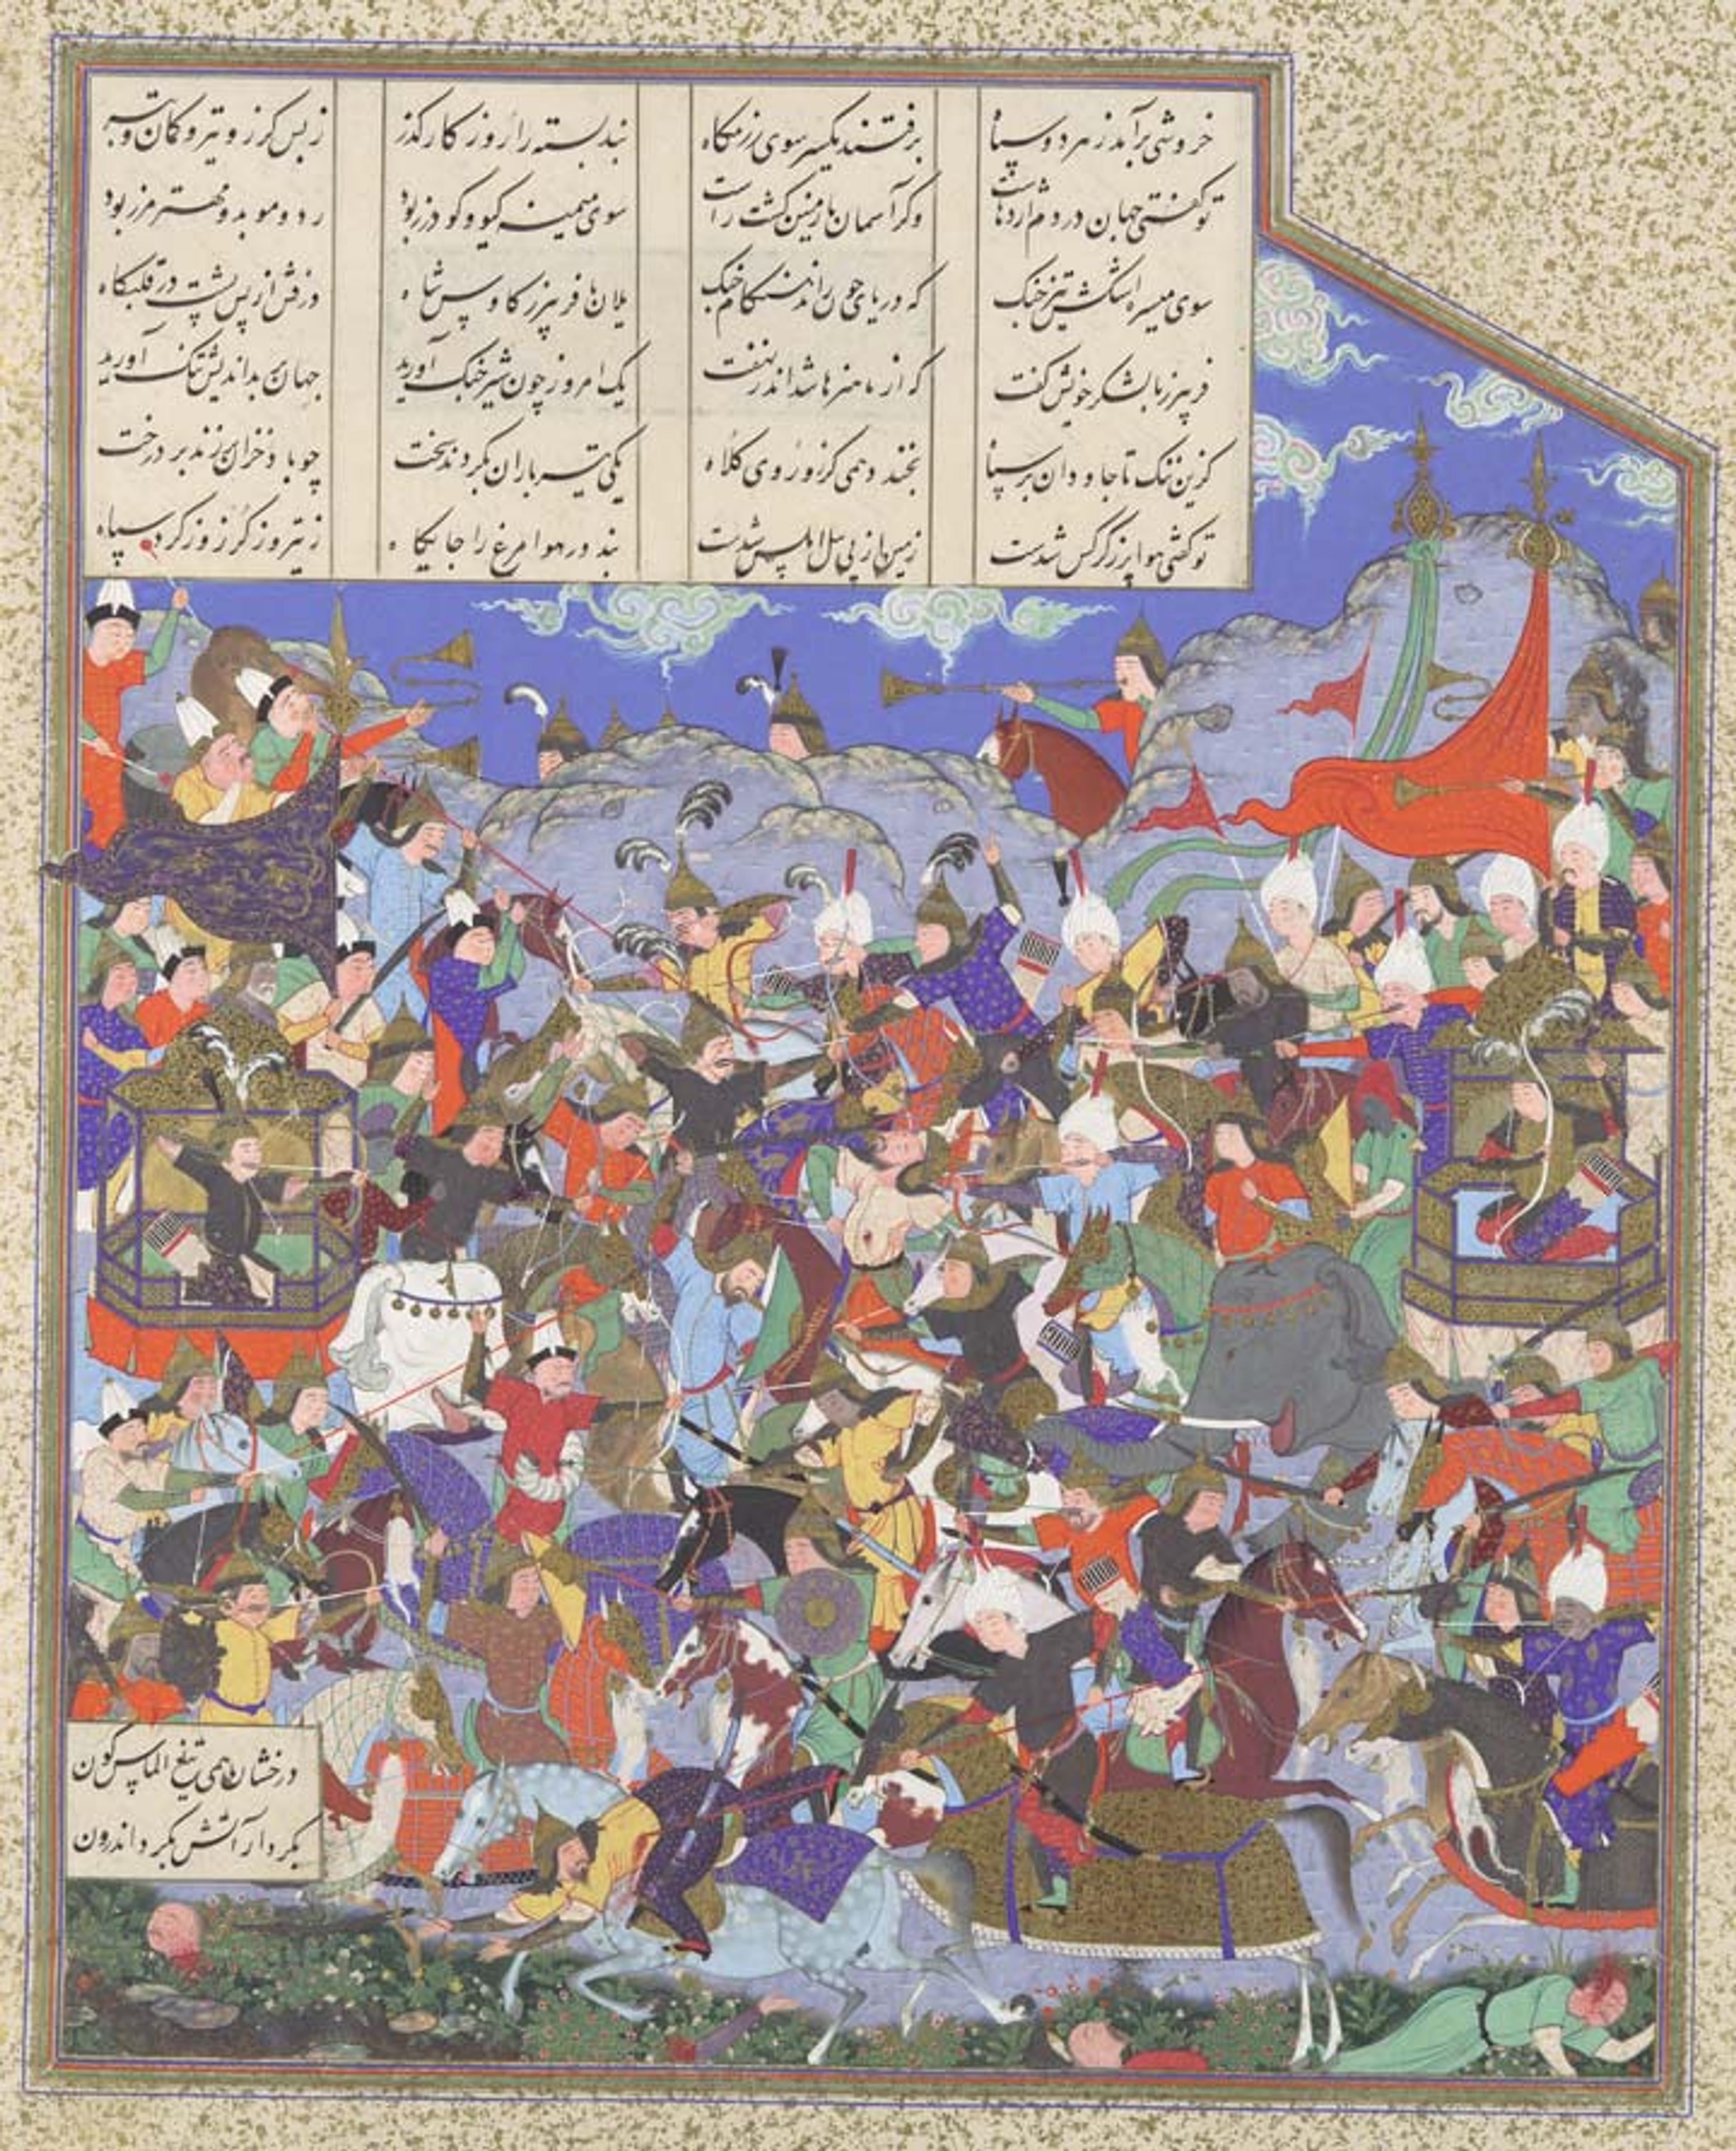 خروشی برآمد ز هر دو سپاه برفتند یکسر سوی رزمگاه نبد بسته را روز کار گذر ز بس گرز و تیر و کمان و تبر
تو گفتی جهان در دم اژدهاست وگر آسمان با زمین گشت راست سوی میمنه گیو و گودرز بود رد و موبد و مهتر مرز بود
سوی میسره اشکش تیز جنگ که دریای خون راند هنگام جنگ یلان با فریبرز کاوس شاه درفش از پس پشت در قلبگاه
فریبرز با لشکر خویش گفت که از ما هنرها شد اندر نهفت یک امروز چون شیر جنگ آورید جهان بر بداندیش تنگ آورید
کزین ننگ تا جاودان بر سپاه بخندد همی گرز و رومی کلاه یکی تیرباران بکردند سخت چو باد خزان برزند بر درخت
تو گفتی هوا پر کرگس شدست زمین از پی شدست نبد در هوا مرغ را جایگاه ز تیر و ز گرز و ز گرد سپاه
درخشان همی تیغ الماس گون
بکردار آتش بگرد اندرون